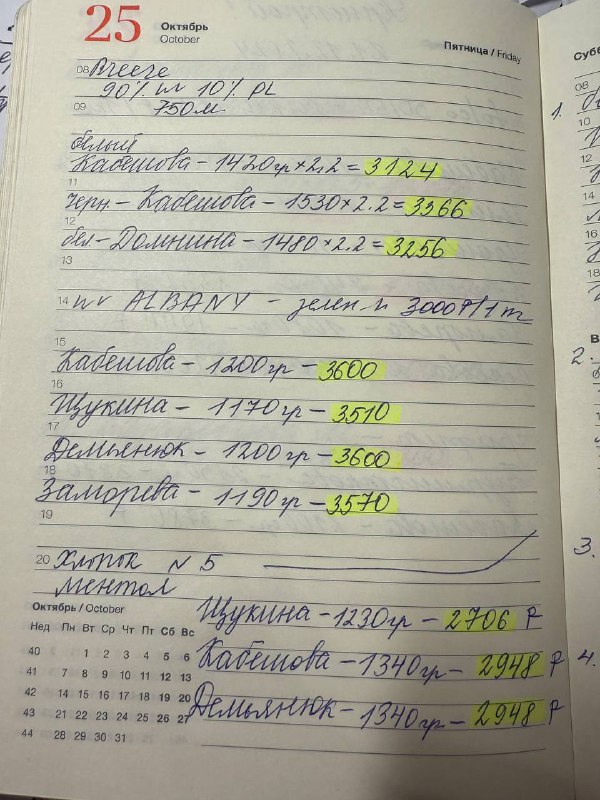 25
Октябрь
October
Пятница / Friday
08 Breeze
90% wv 10% PL
09 750м
белый
Кабешова – 1420гр × 2,2 = 3124
11
черн – Кабешова – 1530 × 2.2 = 3366
12
бел – Домнина – 1480 × 2.2 = 3256
13
14 wv ALBANY – зелен. 3000₽/1т
15
Кабешова – 1200гр – 3600
16
Щукина – 1170гр – 3510
17
Демьянюк – 1200гр – 3600
18
Заморева – 1190гр – 3570
19
20 Хлопок N 5
ментол
Щукина – 1230гр – 2706 ₽
Кабешова – 1340гр – 2948 ₽
Демьянюк – 1340гр – 2948 ₽
Октябрь / October
Нед Пн Вт Ср Чт Пт Сб Вс
40 1 2 3 4 5 6
41 7 8 9 10 11 12 13
42 14 15 16 17 18 19 20
43 21 22 23 24 25 26 27
44 28 29 30 31
Суб
08
1.
10
12
14
16
18
2.
3.
4.